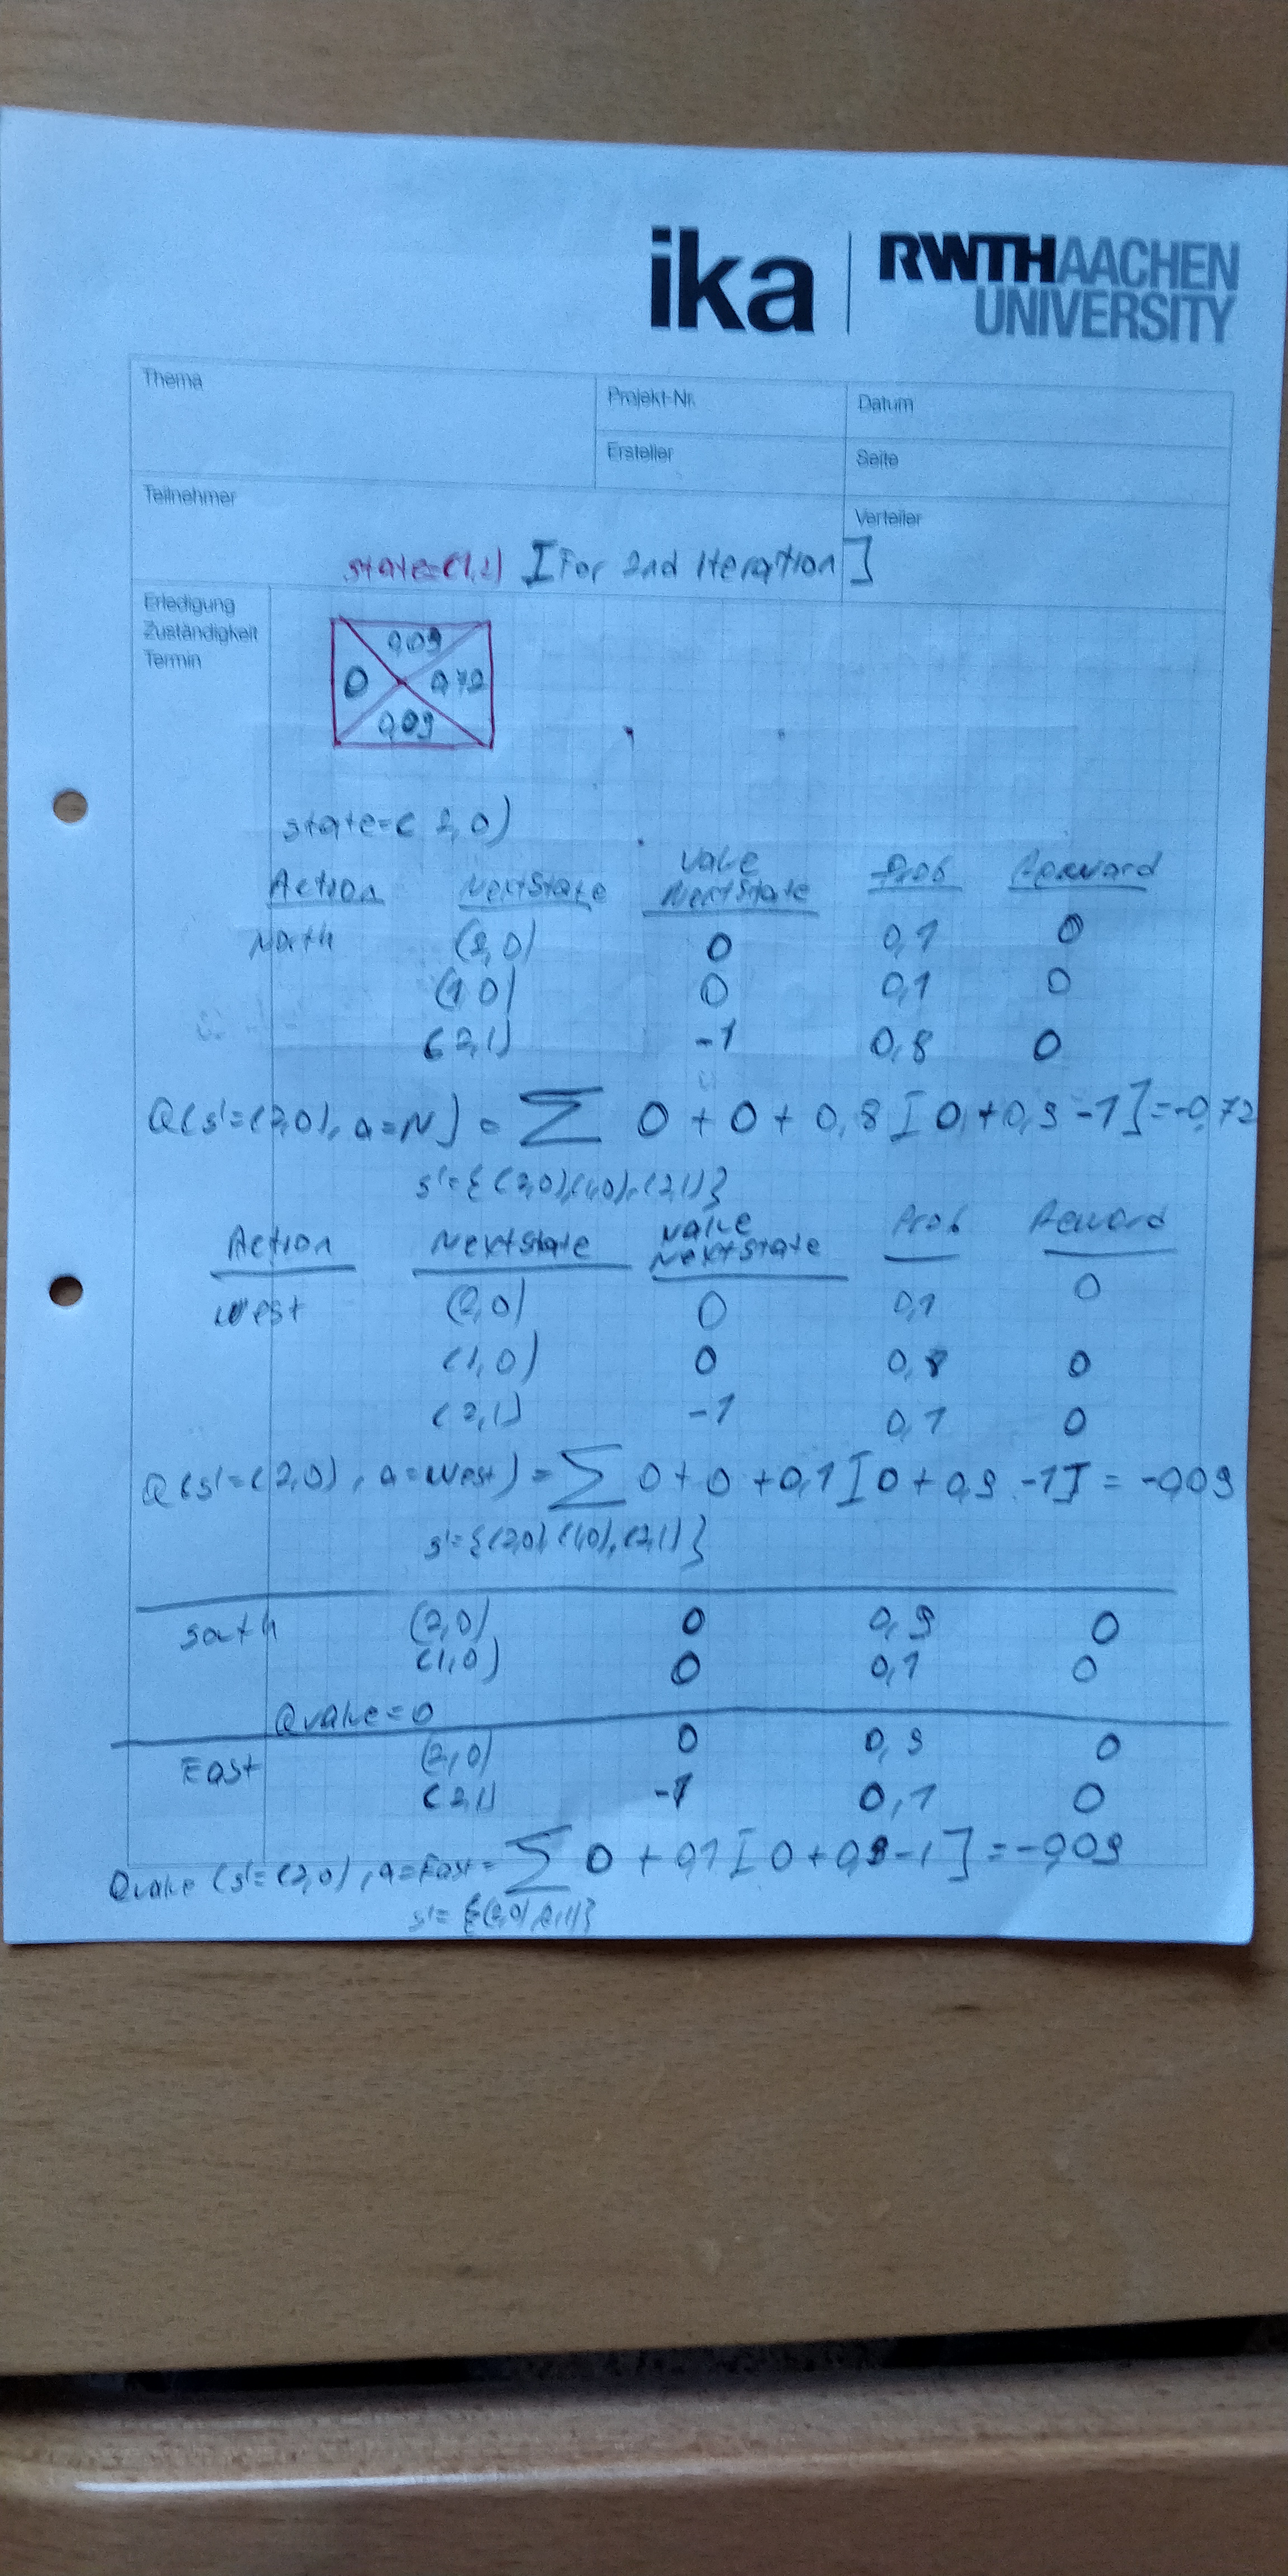 ika RWTHAACHEN UNIVERSITY
Thema
Projekt-Nr.
Datum
Ersteller
Seite
Teilnehmer
Verteiler
[For 2nd Iteration]
Erledigung
Zuständigkeit
Termin
0,09
0 0,72
0,09
state=(2,0)
Action NextState Value NextState Prob Reward
North (2,0) 0 0,1 0
(1,0) 0 0,1 0
(2,1) -1 0,8 0
Q(s'=(2,0), a=N) = Σ 0 + 0 + 0,8 [0,+0,9 -1] = -0,72
s'={(2,0),(1,0),(2,1)}
Action NextState Value NextState Prob Reward
West (2,0) 0 0,1 0
(1,0) 0 0,8 0
(2,1) -1 0,1 0
Q(s'=(2,0), a=West) = Σ 0 + 0 + 0,1 [0 + 0,9 -1] = -0,09
s'={(2,0),(1,0),(2,1)}
South (2,0) 0 0,9 0
(1,0) 0 0,1 0
Qvalue = 0
East (2,0) 0 0,9 0
(2,1) -1 0,1 0
Qvalue (s'=(2,0), a=East = Σ 0 + 0,1 [0 + 0,9 -1] = -0,09